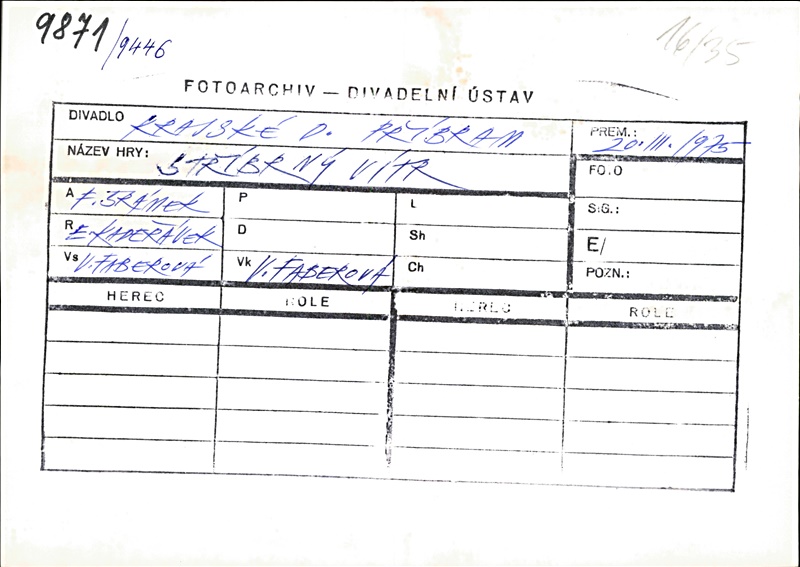 9871/9446
16/35
FOTOARCHIV — DIVADELNÍ ÚSTAV
DIVADLO KRAJSKÉ D. PŘÍBRAM
PREM.: 20. III. /1975
NÁZEV HRY: STŘÍBRNÝ VÍTR
FO.O
A F. ŠRÁMEK P L
S:G.:
R E. KADEŘÁVEK D Sh
E/
Vs V. FABEROVÁ Vk V. FABEROVÁ Ch
POZN.:
HEREC ROLE HEREC ROLE